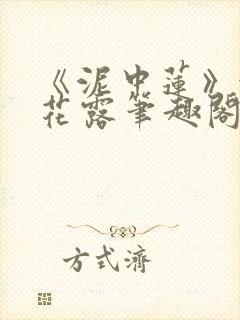 《泥中蓮》
花露筆趣閣
方式濟